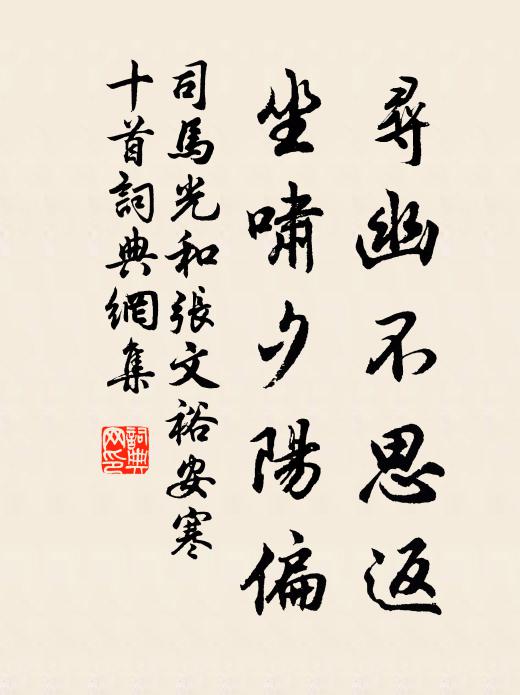 尋幽不思返
坐嘯夕陽偏
司馬光和張文裕安寒
十首詞典網集
詞典網印